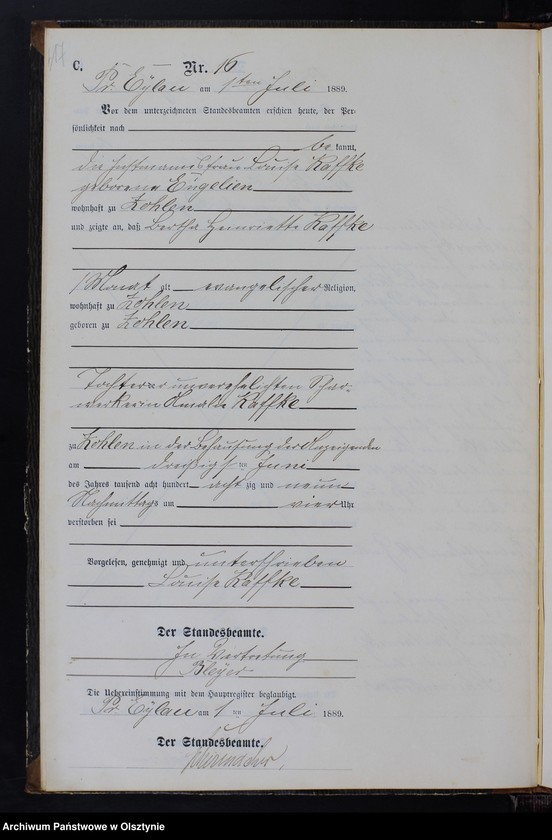 C.
Nr. 16
Pr. Eylau am 1ten Juli 1889.
Vor dem unterzeichneten Standesbeamten erschien heute, der Per-
sönlichkeit nach
be kannt,
die Instmannsfrau Louise Kaffke
geborene Engelien
wohnhaft zu Zohlen
und zeigte an, daß Bertha Henriette Kaffke
1 Monat alt evangelischer Religion,
wohnhaft zu Zohlen
geboren zu Zohlen
Tochter der unverehelichten Schar-
werkerin Amalie Kaffke
zu Zohlen in der Behausung der Anzeigenden
am dreißigsten Juni
des Jahres tausend acht hundert acht zig und neun
Nachmittags um vier Uhr
verstorben sei
Vorgelesen, genehmigt und unterschrieben
Louise Kaffke
Der Standesbeamte.
In Vertretung
Bleyer
Die Uebereinstimmung mit dem Hauptregister beglaubigt.
Pr. Eylau am 1 ten Juli 1889.
Der Standesbeamte.
Archiwum Państwowe w Olsztynie